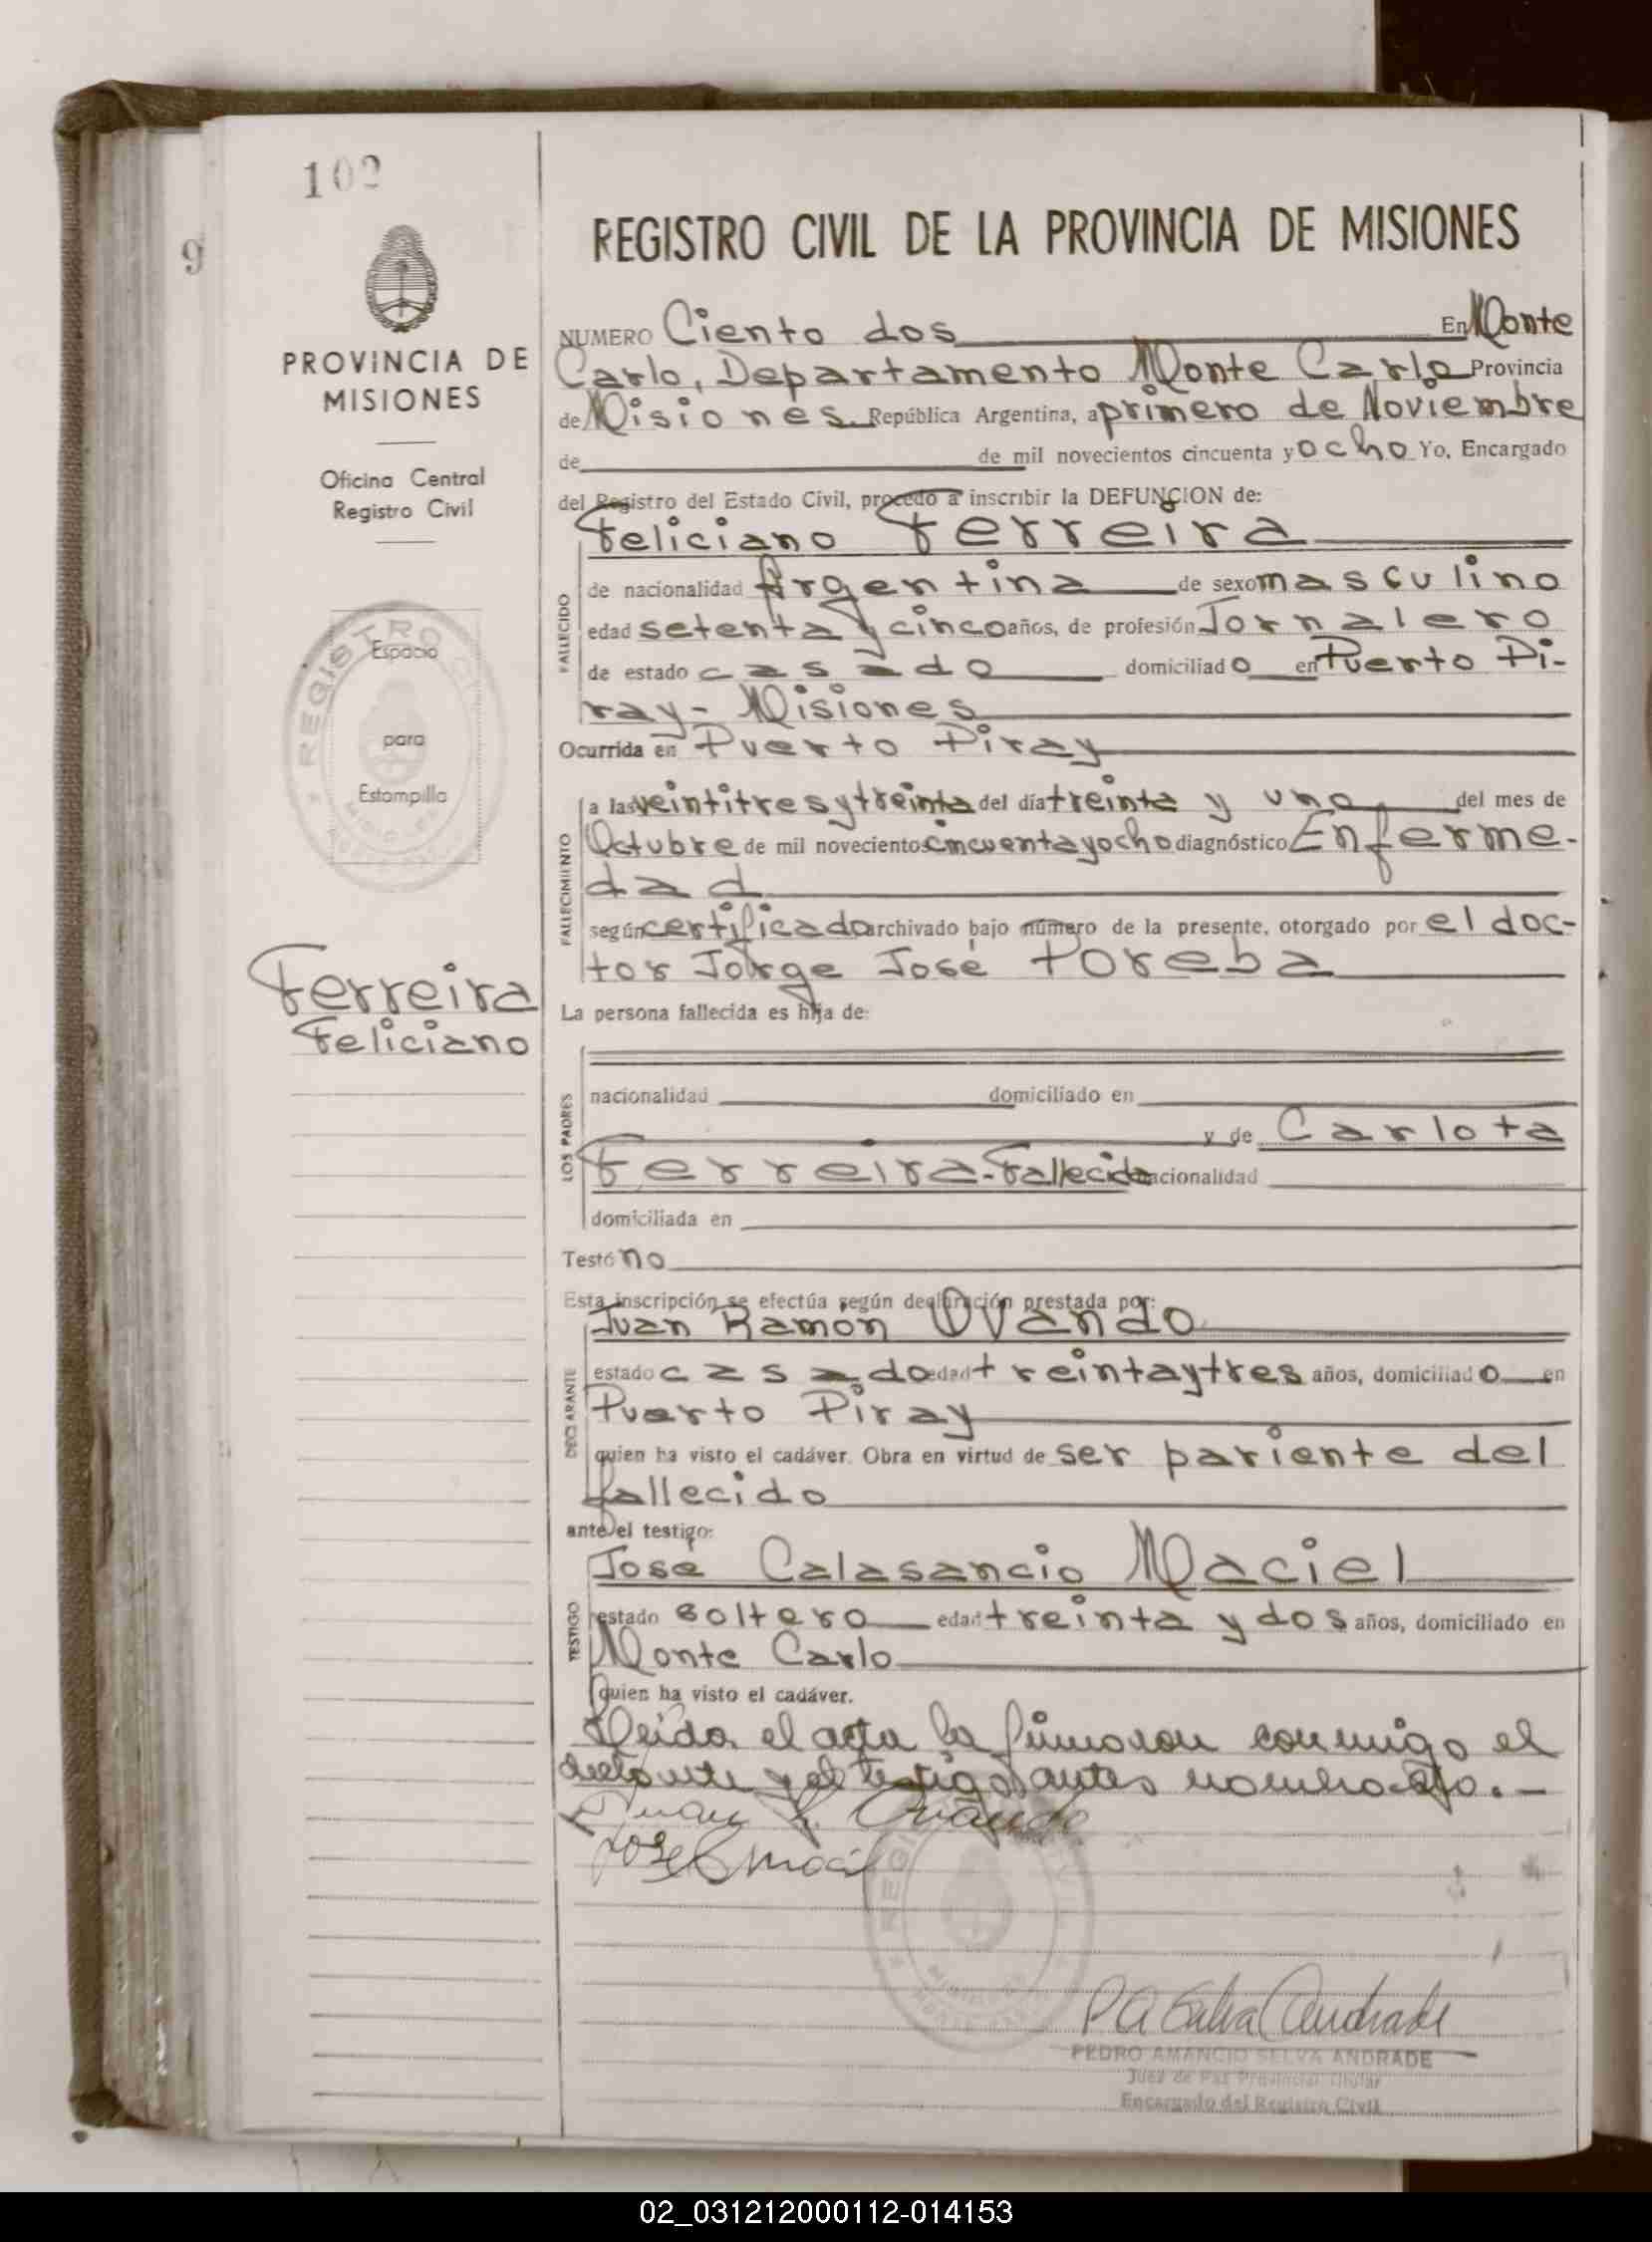 102
9
PROVINCIA DE
MISIONES
Oficina Central
Registro Civil
Espacio
para
Estampilla
Ferreira
Feliciano
REGISTRO CIVIL DE LA PROVINCIA DE MISIONES
NUMERO Ciento dos En Monte
Carlo, Departamento Monte Carlo Provincia
de Misiones República Argentina, a primero de Noviembre
de de mil novecientos cincuenta y ocho Yo, Encargado
del Registro del Estado Civil, procedo a inscribir la DEFUNCION de:
Feliciano Ferreira
FALLECIDO
de nacionalidad Argentina de sexo masculino
edad setenta y cinco años, de profesión Jornalero
de estado casado domiciliado en Puerto Pi-
ray - Misiones
Ocurrida en Puerto Piray
FALLECIMIENTO
a las veintitres y treinta del día treinta y uno del mes de
Octubre de mil novecientos cincuenta y ocho diagnóstico Enferme-
dad
según certificado archivado bajo número de la presente, otorgado por el doc-
tor Jorge José Poreba
La persona fallecida es hija de:
LOS PADRES
nacionalidad domiciliado en
y de Carlota
Ferreira - Fallecida nacionalidad
domiciliada en
Testó no
Esta inscripción se efectúa según declaración prestada por:
Juan Ramon Ovando
DECLARANTE
estado casado edad treinta y tres años, domiciliado en
Puerto Piray
quien ha visto el cadáver. Obra en virtud de ser pariente del
fallecido
ante el testigo:
José Calasancio Maciel
TESTIGO
estado soltero edad treinta y dos años, domiciliado en
Monte Carlo
quien ha visto el cadáver.
Leída el acta la firmaron conmigo el
y el testigo antes nombrado.-
Juan R. Ovando
Jose C Maciel
P A Selva Andrade
PEDRO AMANCIO SELVA ANDRADE
Juez de Paz Provincial Titular
Encargado del Registro Civil
02_031212000112-014153